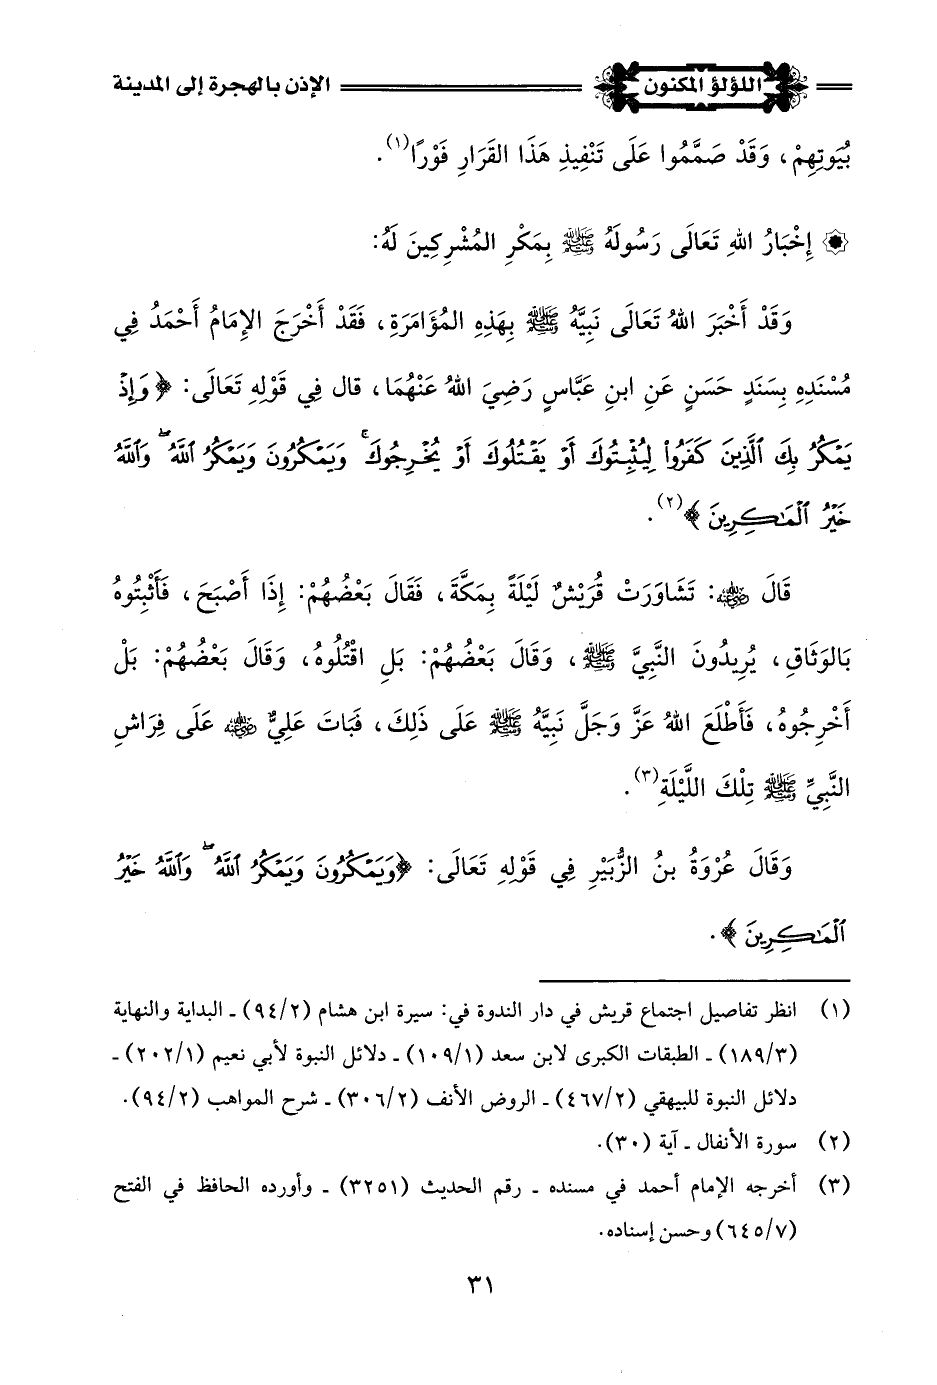 اللؤلؤ المكنون الإذن بالهجرة إلى المدينة
بُيُوتِهِمْ، وَقَدْ صَمَّمُوا عَلَى تَنْفِيذِ هَذَا القَرَارِ فَوْرًا(١).
إِخْبَارُ اللهِ تَعَالَى رَسُولَهُ ﷺ بِمَكْرِ المُشْرِكِينَ لَهُ:
وَقَدْ أَخْبَرَ اللهُ تَعَالَى نَبِيَّهُ ﷺ بِهَذِهِ المُؤَامَرَةِ، فَقَدْ أَخْرَجَ الإِمَامُ أَحْمَدُ فِي
مُسْنَدِهِ بِسَنَدٍ حَسَنٍ عَنِ ابنِ عَبَّاسٍ رَضِيَ اللهُ عَنْهُمَا، قال فِي قَوْلِهِ تَعَالَى: ﴿وَإِذْ
يَمْكُرُ بِكَ ٱلَّذِينَ كَفَرُوا۟ لِيُثْبِتُوكَ أَوْ يَقْتُلُوكَ أَوْ يُخْرِجُوكَ ۚ وَيَمْكُرُونَ وَيَمْكُرُ ٱللَّهُ ۖ وَٱللَّهُ
خَيْرُ ٱلْمَـٰكِرِينَ﴾(٢).
قَالَ رضي الله عنه: تَشَاوَرَتْ قُرَيْشٌ لَيْلَةً بِمَكَّةَ، فَقَالَ بَعْضُهُمْ: إِذَا أَصْبَحَ، فَأَثْبِتُوهُ
بَالوَثَاقِ، يُرِيدُونَ النَّبِيَّ ﷺ، وَقَالَ بَعْضُهُمْ: بَلِ اقْتُلُوهُ، وَقَالَ بَعْضُهُمْ: بَلْ
أَخْرِجُوهُ، فَأَطْلَعَ اللهُ عَزَّ وَجَلَّ نَبِيَّهُ ﷺ عَلَى ذَلِكَ، فَبَاتَ عَلِيٌّ رضي الله عنه عَلَى فِرَاشِ
النَّبِيِّ ﷺ تِلْكَ اللَّيْلَةِ(٣).
وَقَالَ عُرْوَةُ بنُ الزُّبَيْرِ فِي قَوْلِهِ تَعَالَى: ﴿وَيَمْكُرُونَ وَيَمْكُرُ ٱللَّهُ ۖ وَٱللَّهُ خَيْرُ
ٱلْمَـٰكِرِينَ﴾.
(١) انظر تفاصيل اجتماع قريش في دار الندوة في: سيرة ابن هشام (٢/٩٤) ـ البداية والنهاية
(٣/١٨٩) ـ الطبقات الكبرى لابن سعد (١/١٠٩) ـ دلائل النبوة لأبي نعيم (١/٢٠٢) ـ
دلائل النبوة للبيهقي (٢/٤٦٧) ـ الروض الأنف (٢/٣٠٦) ـ شرح المواهب (٢/٩٤).
(٢) سورة الأنفال ـ آية (٣٠).
(٣) أخرجه الإمام أحمد في مسنده ـ رقم الحديث (٣٢٥١) ـ وأورده الحافظ في الفتح
(٧/٦٤٥) وحسن إسناده.
٣١